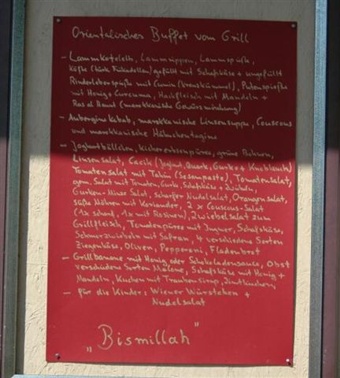 Orientalisches Buffet vom Grill
- Lammkoteletts, Lammrippen, Lammspieße,
Köfte (türk. Frikadellen) gefüllt mit Schafskäse + ungefüllt
Rinderleberspieße mit Cumin (Kreuzkümmel), Putenspieße
mit Honig + Curcuma, Hackfleisch mit Mandeln +
Ras el Hanout (marokkanische Gewürzmischung)
- Aubergine Kebab, marokkanische Linsensuppe, Couscous
und marokkanische Hähnchentagine
- Joghurtbällchen, Kichererbsenpüree, grüne Bohnen,
Linsensalat, Cacik (Joghurt, Quark, Gurke + Knoblauch)
Tomatensalat mit Tahin (Sesampaste), Tomatensalat,
gem. Salat mit Tomaten, Gurke, Schafskäse + Zwiebeln,
Gurken-Minze Salat, scharfer Nudelsalat, Orangensalat,
süße Möhren mit Koriander, 2 x Couscous-Salat
(1x scharf, 1x mit Rosinen), Zwiebelsalat zum
Grillfleisch, Tomatenpüree mit Ingwer, Schafskäse,
Schmorzwiebeln mit Safran, 4 verschiedene Sorten
Ziegenkäse, Oliven, Pepperoni, Fladenbrot
- Grillbanane mit Honig oder Schokoladensauce, Obst
verschiedene Sorten Melone, Schafskäse mit Honig +
Mandeln, Kuchen mit Traubensirup,
- für die Kinder: Wiener Würstchen +
Nudelsalat
"Bismillah"